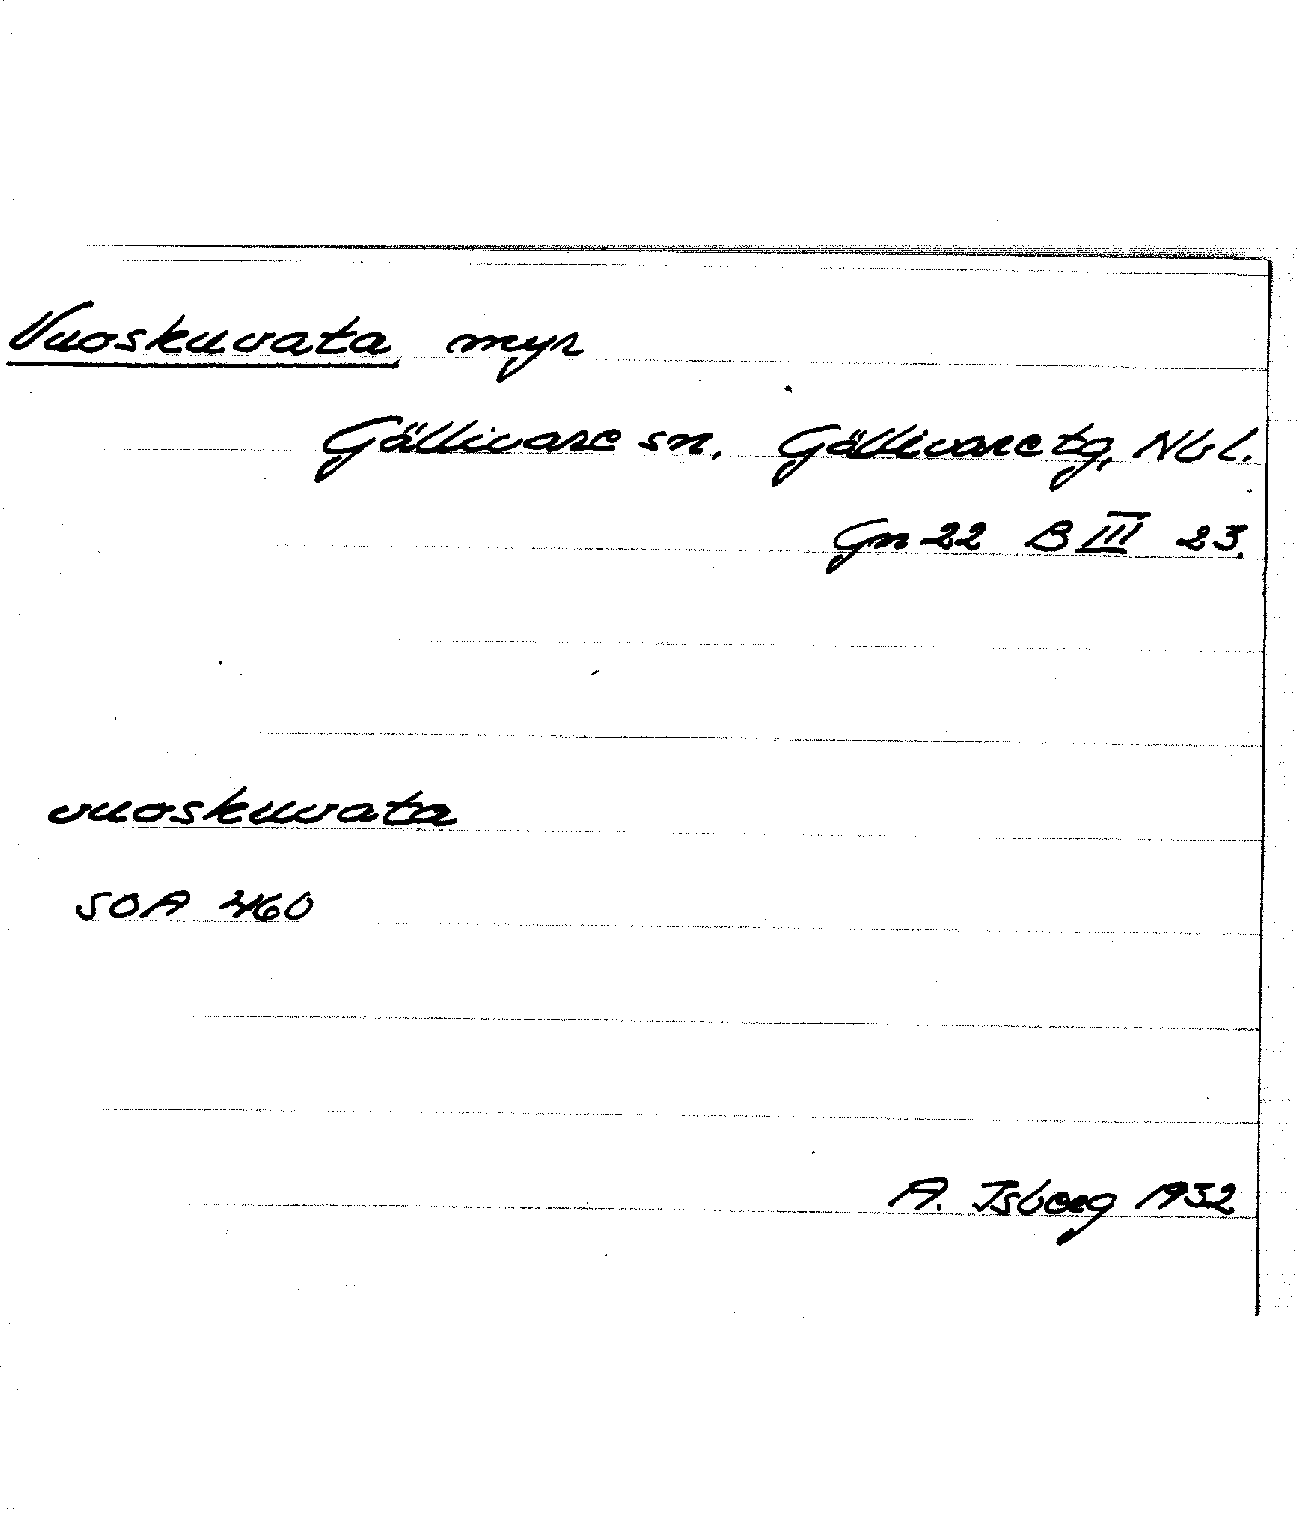 Vuoskuvata myr
Gällivare sn. Gällivare tg, Nbl.
Gn 22 B III 23.
vuoskuvata
SOA 460
A. Isberg 1932